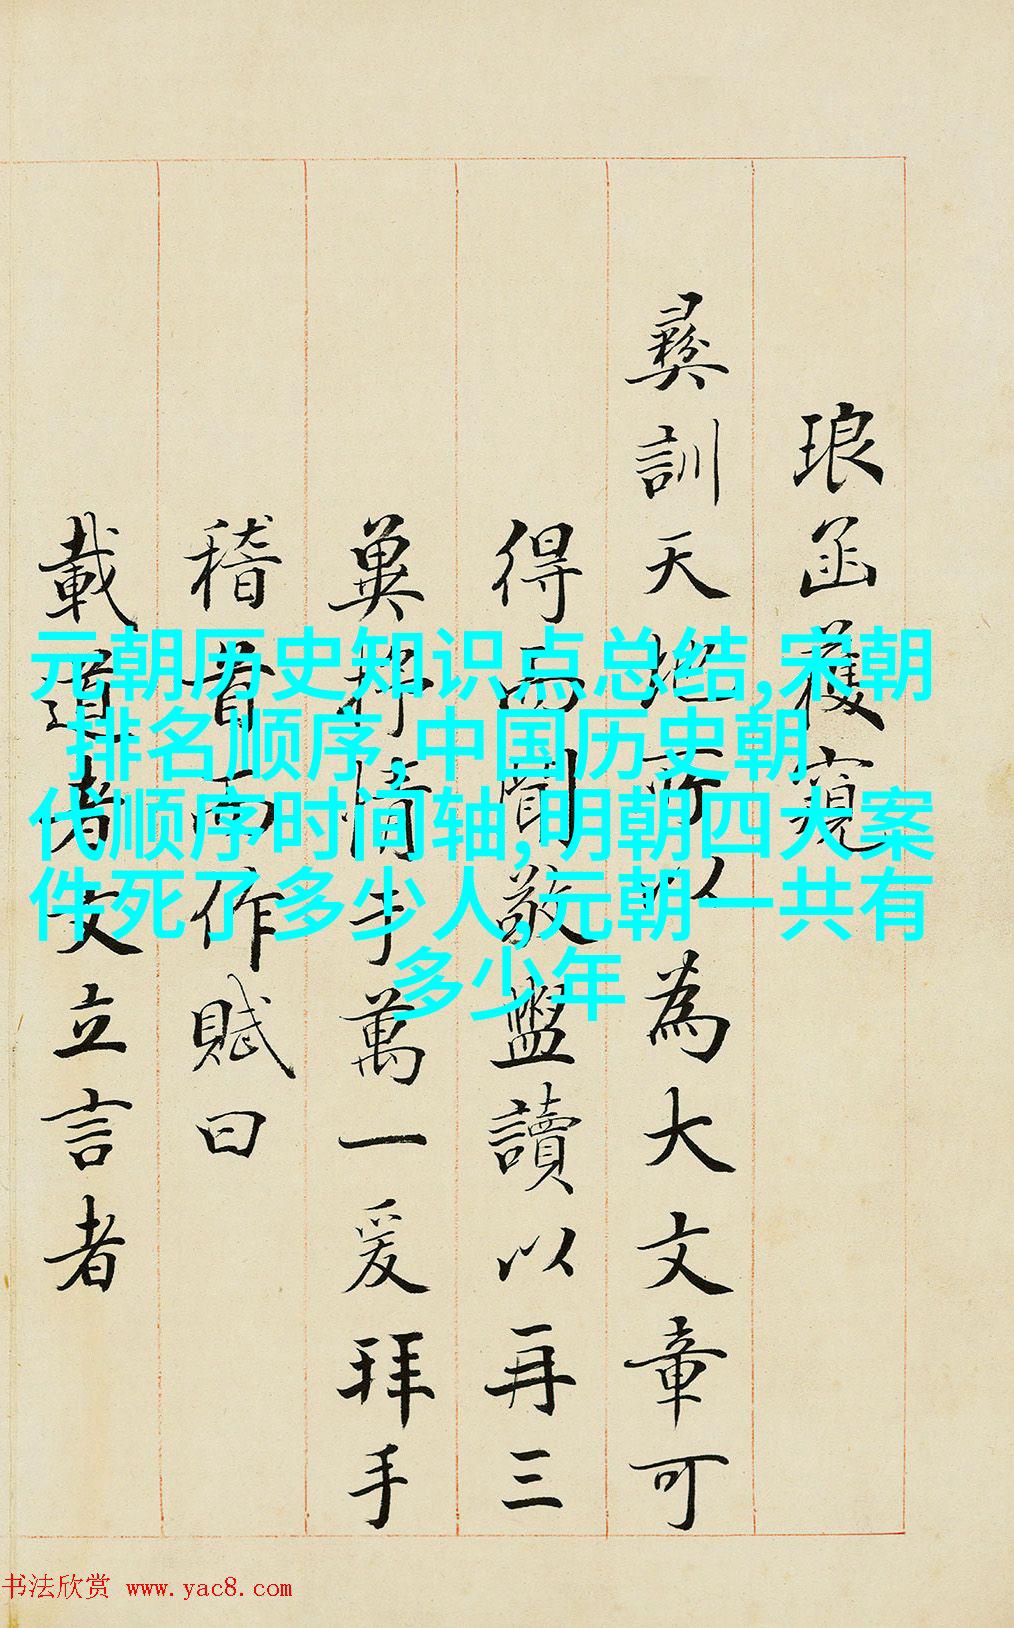 元朝历史知识点总结,宋朝
排名顺序,中国历史朝
代顺序时间轴,明朝四大案
件死了多少人,元朝一共有
多少年
琅函獲窺
彝訓天地所以為大文章可
得而聞敬盥讀以再三
冀抒情于萬一爰拜手
稽首而作賦曰
載道者文立言者
书法欣赏 www.yac8.com